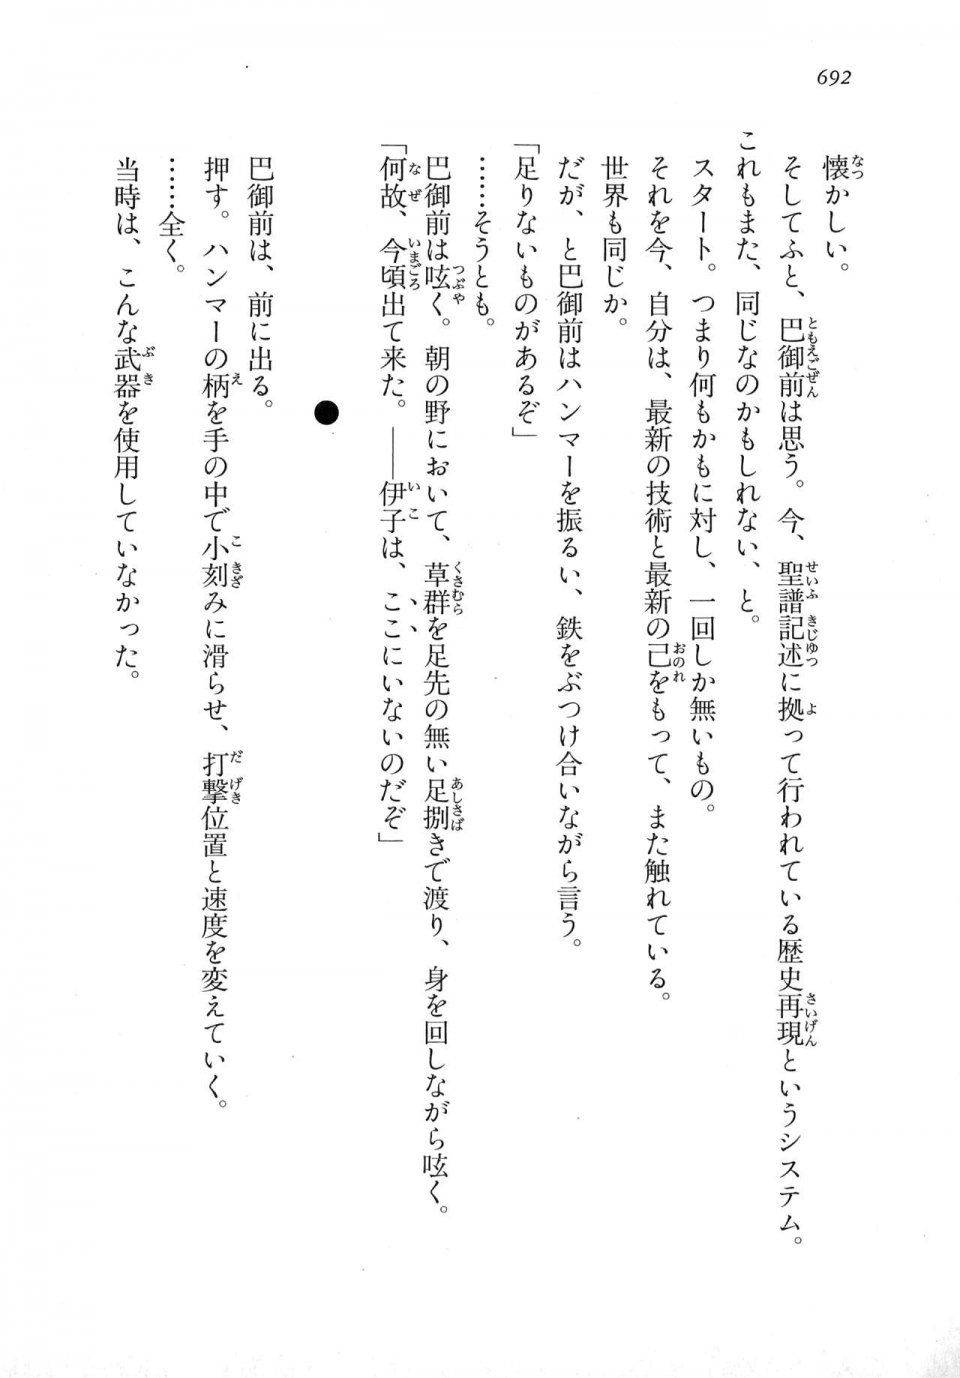 692
懐かしい。
そしてふと、巴御前は思う。今、聖譜記述に拠って行われている歴史再現というシステム。
これもまた、同じなのかもしれない、と。
スタート。つまり何もかもに対し、一回しか無いもの。
それを今、自分は、最新の技術と最新の己をもって、また触れている。
世界も同じか。
だが、と巴御前はハンマーを振るい、鉄をぶつけ合いながら言う。
「足りないものがあるぞ」
……そうとも。
巴御前は呟く。朝の野において、草群を足先の無い足捌きで渡り、身を回しながら呟く。
「何故、今頃出て来た。——伊子は、ここにいないのだぞ」
●
巴御前は、前に出る。
押す。ハンマーの柄を手の中で小刻みに滑らせ、打撃位置と速度を変えていく。
……全く。
当時は、こんな武器を使用していなかった。